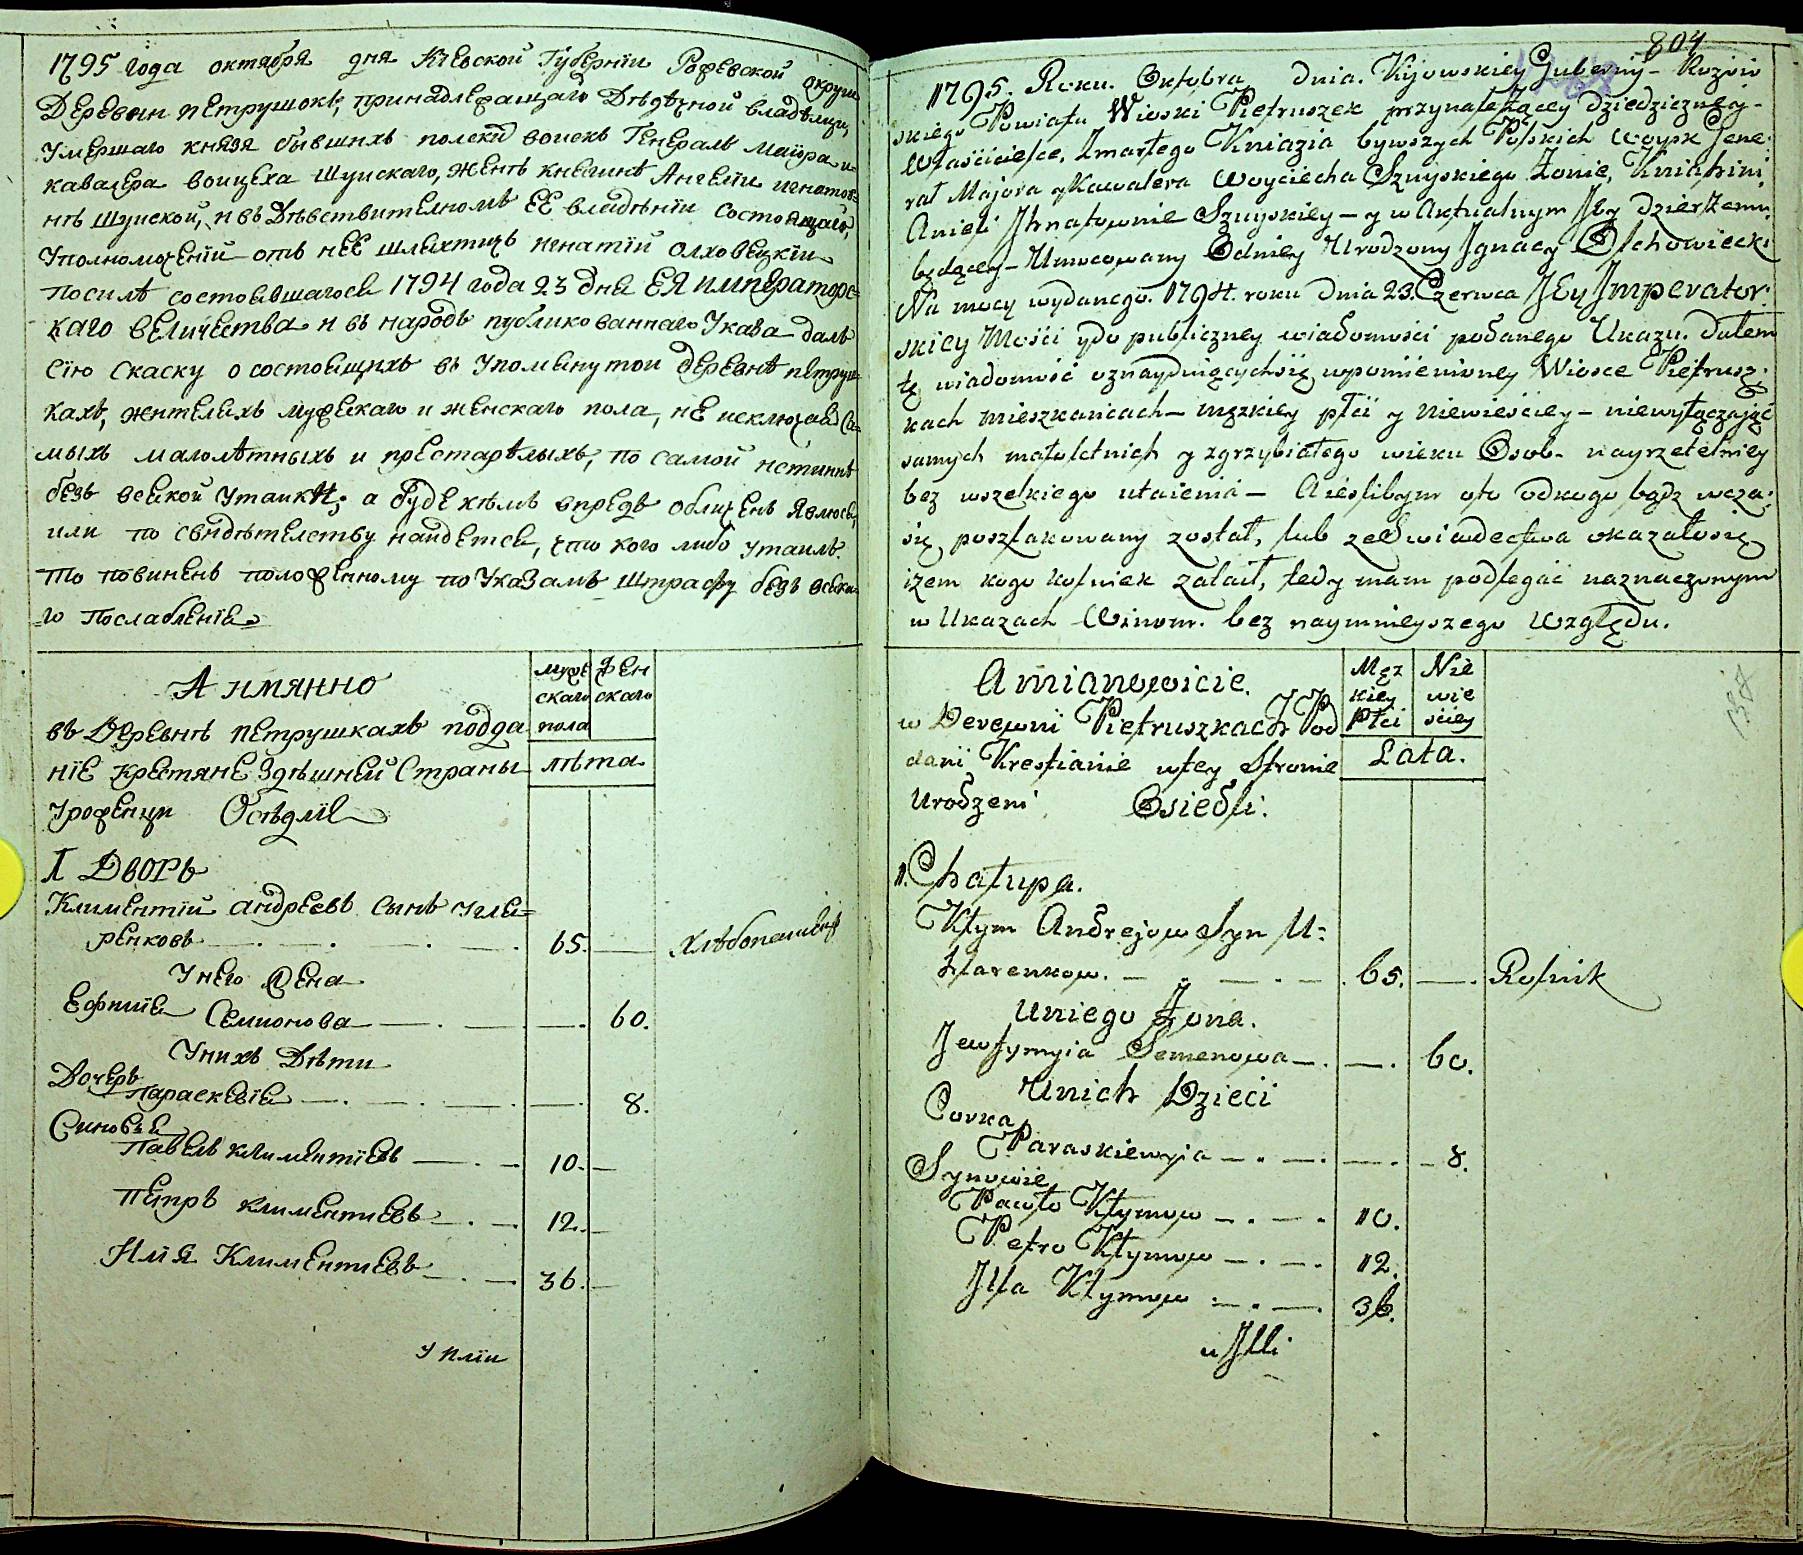 1795 года октября дня Кіевской Губерніи Рожевской округи
Деревни петрушокъ, принадлежащаго Дѣдѣчной владѣлци,
умершаго князя бывшихъ полскихъ воискъ Генералъ маиора и
кавалера воицеха шуискаго, женѣ княгинѣ Ангели игнатов-
нѣ шуиской, и въ Дѣвствителномъ ЕЕ владѣніи состоящаго,
уполномоченій отъ неЕ шляхтичъ игнатій олховецкій
посилѣ состоявшагося 1794 года 23 дня ЕЯ императорс-
каго величества и въ народъ публикованнаго Указа далъ
сію скаску о состоящихъ въ упомянутои деревнѣ петруш-
кахъ, жителяхъ мужескаго и женскаго пола, не исключая са-
мыхъ малолѣтныхъ и престарѣлыхъ, по самой истиннѣ
безъ всякой утаики; а буде кѣмъ впредь обличенъ явлюсь,
или по свидѣтелству наидется, что кого либо утаилъ
то повиненъ положенному по Указамъ штрафу безъ всяка-
го послабленія
А имянно
въ Деревнѣ петрушкахъ подда
ніе крестяне здѣшней страны
уроженци Осѣдліе
муже скаго пола
жен скаго
лѣта
1 Дворъ
Климентій андреевъ сынъ угля=
ренковъ 65. Хлѣбопашецъ
У него жена
Ефимія Семионова 60.
У нихъ Дѣти
Дочерь
Параскевія 8.
Синовья
Павелъ климентіевъ 10.
Петръ климентиевъ 12.
Илія Климентиевъ 36.
у иліи
804
1795. Roku. Oktobra dnia. Kijowskiey Gubernij - Rożow
skiego Powiatu Wioski Pietruszek przynależącey dziedziczney
Właścicielce, Zmarłego Kniazia bywszych Polskich Woysk Jene:
rał Majora y Kawalera Woyciecha Szuyskiego Żonie, Kniahini
Anieli Jhnatownie Szuyskiey - y w Aktualnym Jey dzierżeniu
będącey - Umocowany Odniey Urodzony Jgnacy Olchowiecki
Na mocy wydanego. 1794. roku Dnia 23. Czerwca Jey Jmperator:
skiey Mości ydo publiczney wiadomości podanego Ukazu. dałem
tę wiadomość oznayduiącychsię wpomienioney Wiosce Pietrusz:
kach mieszkańcach - męzkiey płci y Niewieściey - niewyłączając
samych małoletnich y zgrzybiałego wieku Osob - nayrzetelniey
bez wszelkiego utaienia - Aieslibym oto odkogo bądz wcza:
się poszlakowany został, lub zeswiadectwa okazałosię
iżem kogo kolwiek zataił, tedy mam podlegać naznaczonym
w Ukazach Winom. bez naymnieyszego Względu.
Amianowicie.
w Derewni Pietruszkach Pod
dani Krestianie wtey Stronie
Urodzeni Osiedli.
Męz kiey Płci
Nie wie ściey
Lata.
1. Chałupa.
Kłym Andrejow Syn U:
hlarenkow. 65. Rolnik
Uniego Żona.
Jewfymyia Semenowa 60.
Unich Dzieci
Corka
Paraskiewyia 8.
Synowie
Pawło Kłymow 10.
Petro Kłymow 12.
Jlla Kłymow 36.
u Jlli